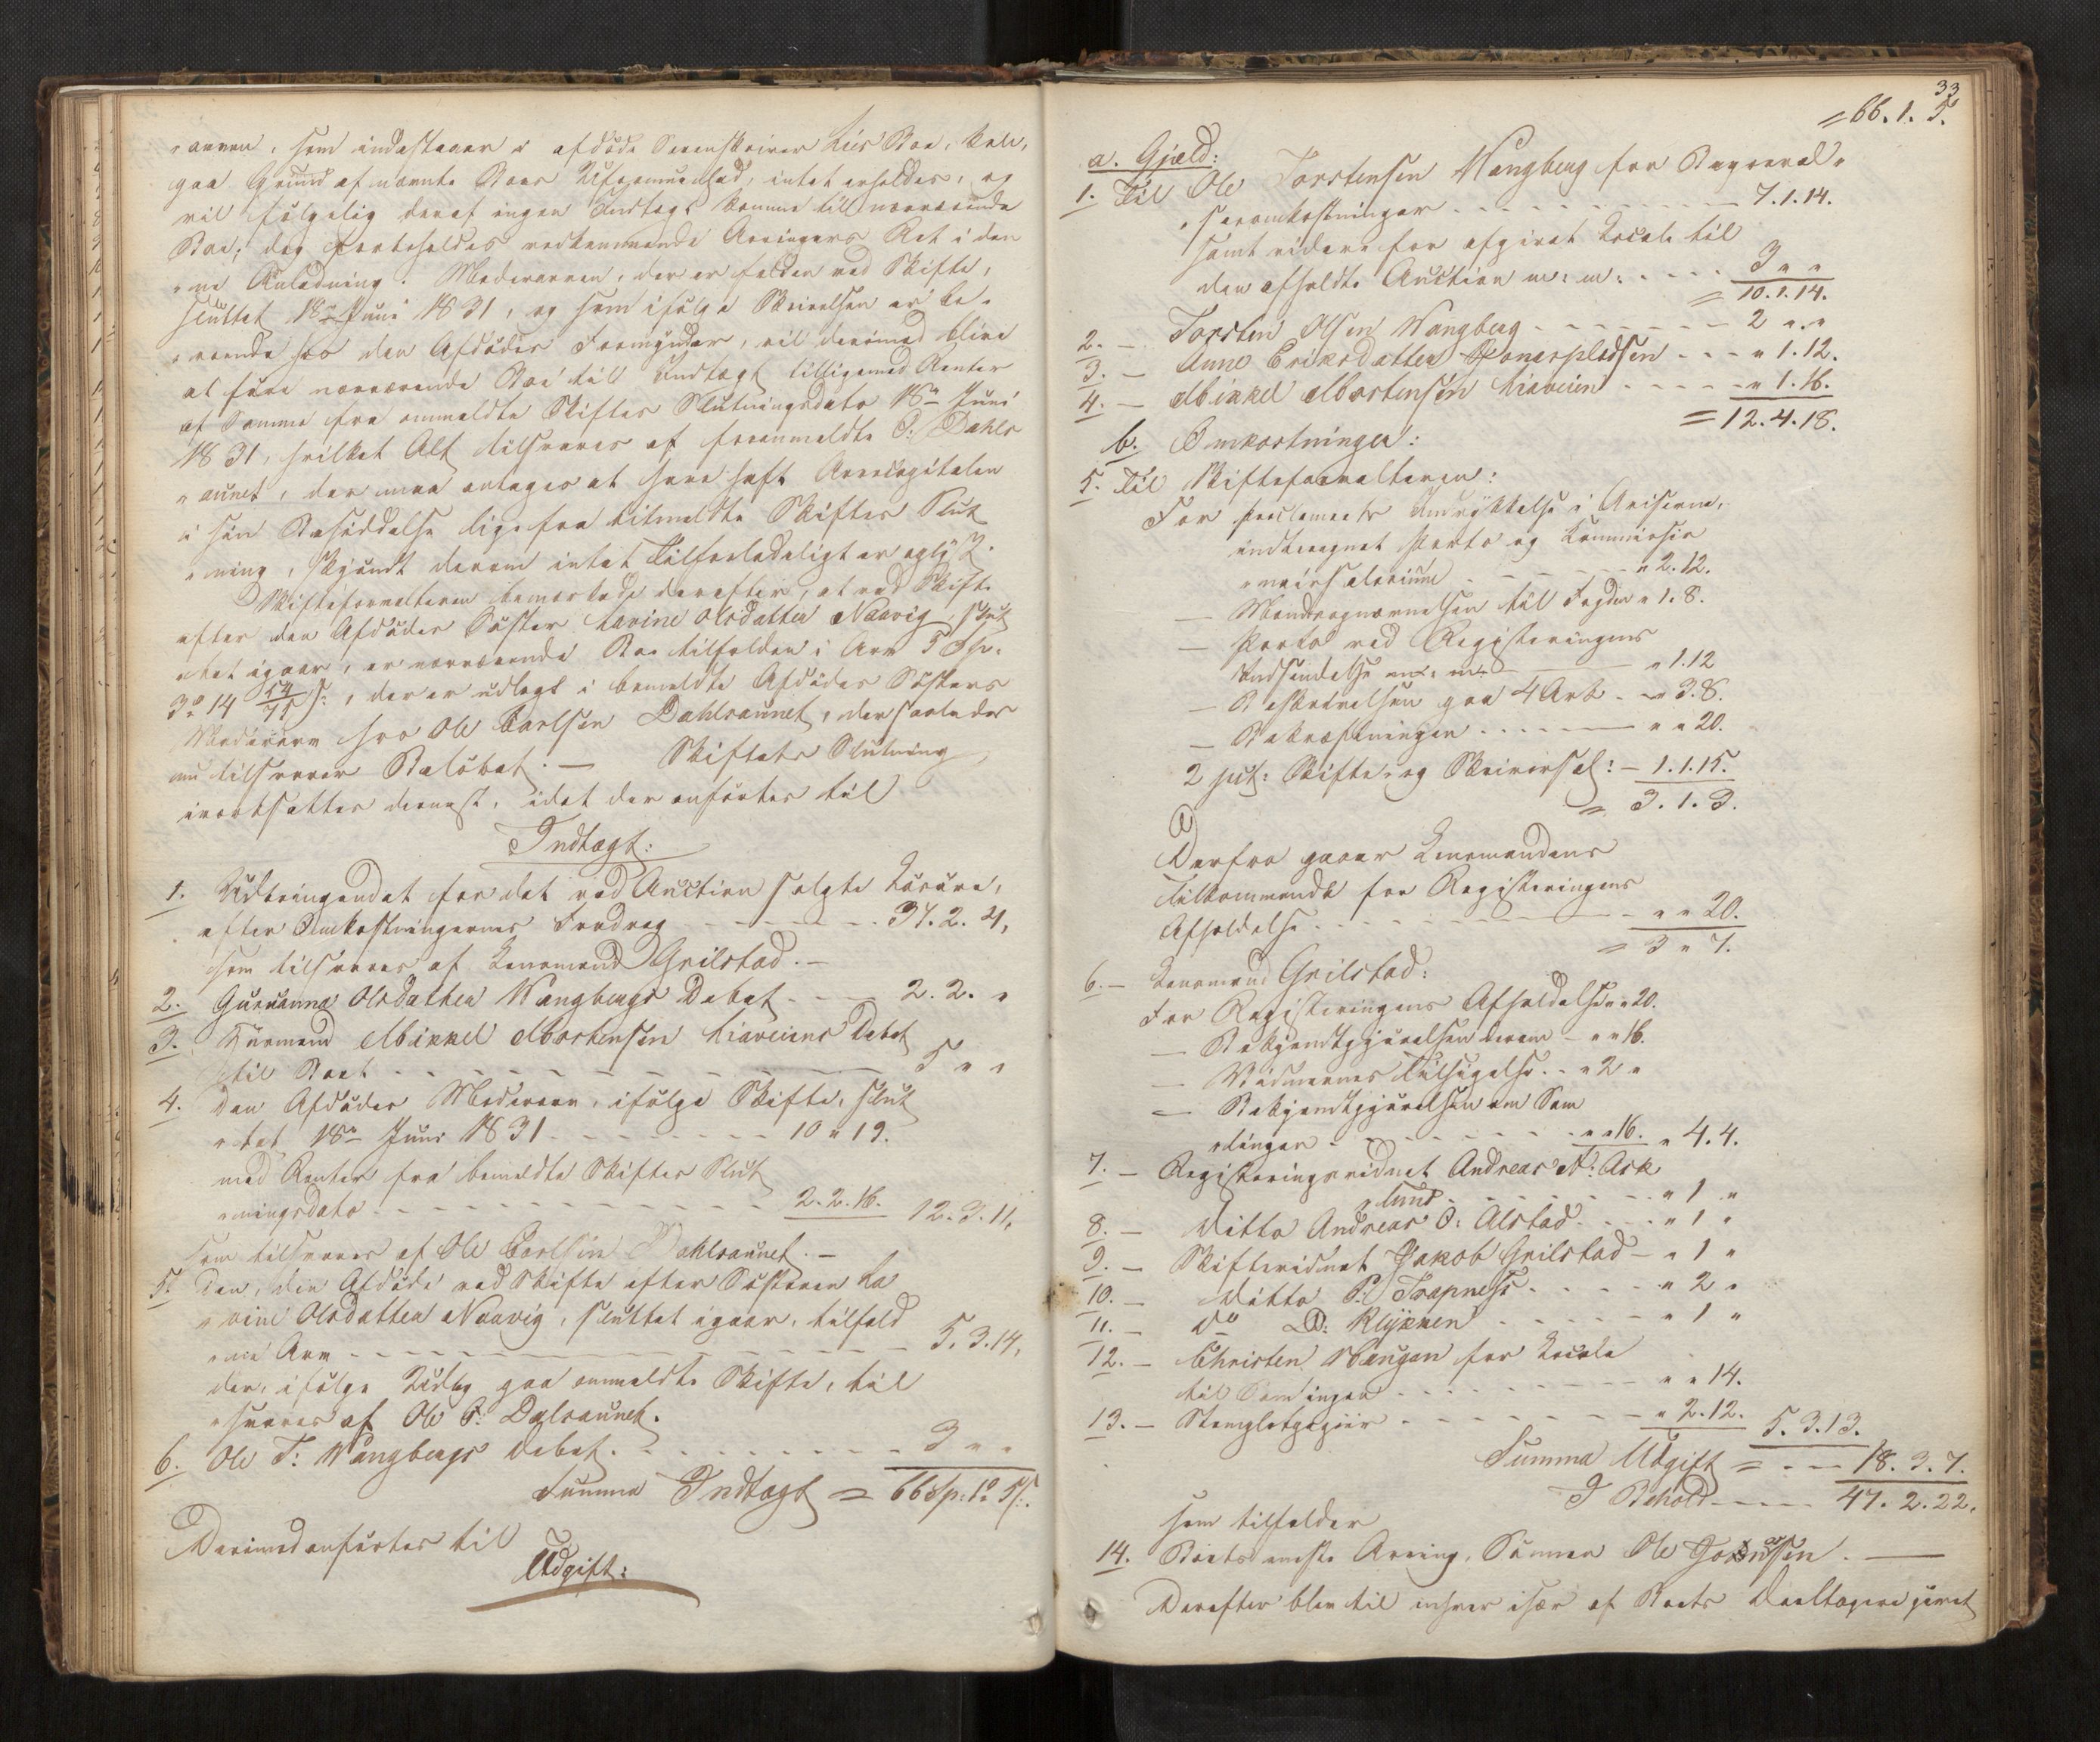 "arven, som indestaaer i afdøde Sorenskriver Lies Boe, kan,
paa Grund af nævnte Boes Uformuenhed, intet erholdes, og
vil følgelig deraf ingen Indtægt komme till nærværende
Boe; dog forbeholdes vedkommende Arvingers Ret i den
"ne Anledning. Mødrearven, der er falden ved Skifte,
sluttet 18de Juni 1831, og som ifølge Skrivelsen er be-
"roende hos den Afdødes Formynder, vil derimod blive
at føre nærværende Boe til Indtægt tilligemed Renter
af Samme fra anmeldte Skiftes Slutningsdato 18de Juni
1831, hvilket Alt tilsvares af foranmeldte C: Dahls
"aunet, der maa antages at have haft Arvecapitalen
i sin Besiddelse lige fra bemeldte Skiftes Slut
"ning, skjøndt derom intet Tilforladeligt er oplyst.
Skifteforvalteren bemærkede derefter, at ved Skifte
efter den Afdødes Søster Lavine Olsdatter Naavig, slut
"tet igaar, er nærværende Boe tilfalden i Arv 5 Sp.
3o 14 54/75 s:, der er udlagt i bemeldte Afdødes Søsters
Mødrearv hos Ole Carlsen Dahlsaunet, der saaledes
nu tilsvarer Beløbet. — Skiftets Slutning
iværksattes dernæst, idet der anførtes til
Indtægt:
1. Udbringendet for det ved Auction solgte Løsøre,
efter Omkostningernes Fradrag - - - - - 37. 2. 4,
som tilsvares af Lensmand Grilstad. —
2. Gurianna Olsdatter Wangbergs Debet - - - 2. 2. "
3. Huusmand Mikkel Mortensen Liaveiens Debet
til Boet - - - - - - - 5 " "
4. Den Afdødes Mødrearv, ifølge Skifte, slut
"tet 18de Juni 1831 - - - - - - 10 " 19.
med Renter fra bemeldte Skiftes Slut
"ningsdato - - - - - - 2. 2. 16. 12. 3. 11,
som tilsvares af Ole Carlsen Dahlsaunet. —
5. Den, den Afdøde ved Skifte efter Søsteren La
"vine Olsdatter Naavig, sluttet igaar, tilfald
"ne Arv - - - - - - - 5. 3. 14,
der, ifølge Udlæg paa anmeldte Skifte, til
"svares af Ole C: Dalsaunet.
6. Ole T: Wangbergs Debet - - - - - - 3 " "
Summa Indtægt = 66 Sp: 1o 5 s.
Derimod anførtes til
Udgift:
33
= 66. 1. 5.
a. Gjæld:
1. Til Ole Torstensen Wangberg for Begravel"
"sesomkostninger - - - - - - 7. 1. 14.
samt videre for afgivet Locale til
den afholdte Auction m: m: - - - - 3 " "
= 10. 1. 14.
2. — Torsten Olsen Wangberg - - - - - - 2 " "
3. — Anne Eriksdatter - - - " 1. 12.
4. — Mikkel Mortensen Liaveien - - - - - " 1. 16.
= 12. 4. 18.
b. Omkostninger:
5. Til Skifteforvalteren:
For Proclamaets Indrykkelse i Aviserne,
indberegnet Porto og Kommissio
"nairsalarium - - - - " 2. 12.
— Mændsopnævnelsen til Fogden " 1. 8.
— Porto ved Registeringens
Indsendelse m: m: — " 1. 12
— Beskrivelsen paa 4 Ark - " 3. 8.
— Bekræftningen - - - - - " " 20.
2 pct: Skifte- og Skriversal: - 1. 1. 15.
= 3. 1. 3.
Derfra gaaer Lensmandens
Tilkommende for Registeringens
Afholdelse - - - - - - - - " " 20.
= 3 " 7.
6. — Lensmand Grilstad:
For Registeringens Afholdelse " " 20.
— Bekjendtgjørelsen derom - " " 16.
— Vidnernes Tilsigelse - - " 2 "
— Bekjendtgjørelsen om Sam
"lingen - - - - - - - " " 16. " 4. 4.
7. — Registeringsvidnet Andreas N: Ask
"lund - - - - - " 1 "
8. — Ditto Andreas O: Alstad - - - " 1 "
9. — Skiftevidnet Jakob Grilstad — " 1 "
10. — Ditto P: Trapness - - - - " 2 "
11. — Do D: Klykken - - - - - " 1 "
12. — Christen Haugan for Locale
til Samlingen - - - - - - - " " 14.
13. — Stemplet papiir - - - - - - " 2. 12. 5. 3. 13.
Summa Udgift = - - - 18. 3. 7.
I Behold - - - - 47. 2. 22.
som tilfalder
14. Boets eneste Arving, Sønnen Ole . —
Derefter blev til enhver især af Boets Deeltagere gjort